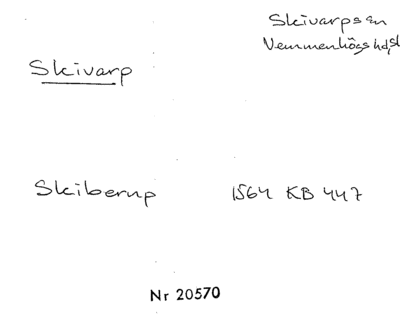 Skivarps sn
Vemmenhögs hd, Sk
Skivarp
Skiberup 1564 KB 447
Nr 20570